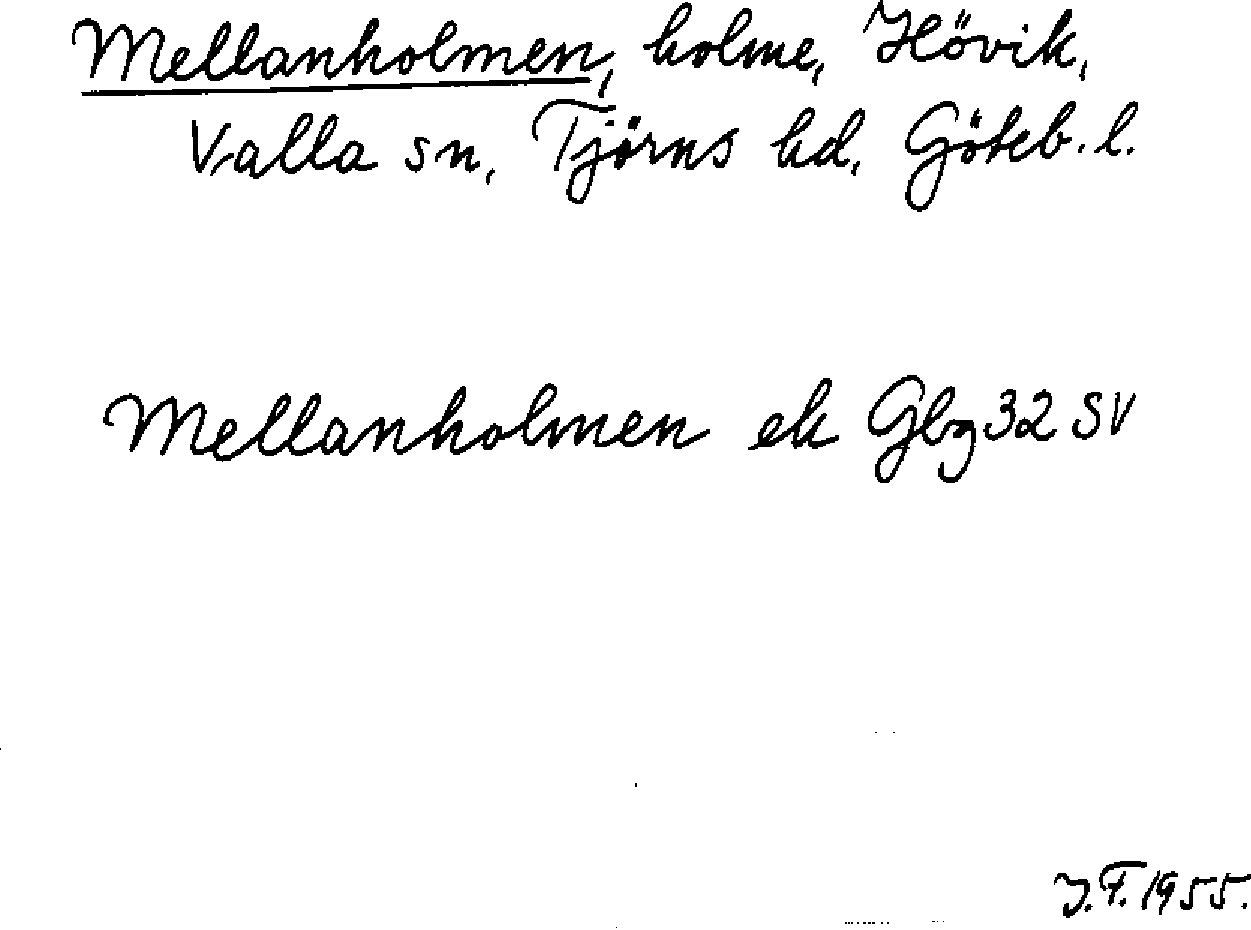 Mellanholmen, holme, Hövik,
Valla sn, Tjörns hd, Göteb. l.
Mellanholmen ek Gbg 32 SV
J.F. 1955.